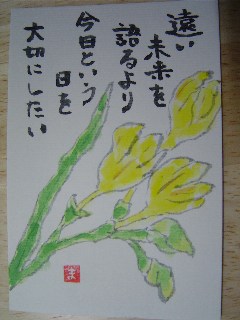 遠い
未来を
語るより
今日という
日を
大切にしたい